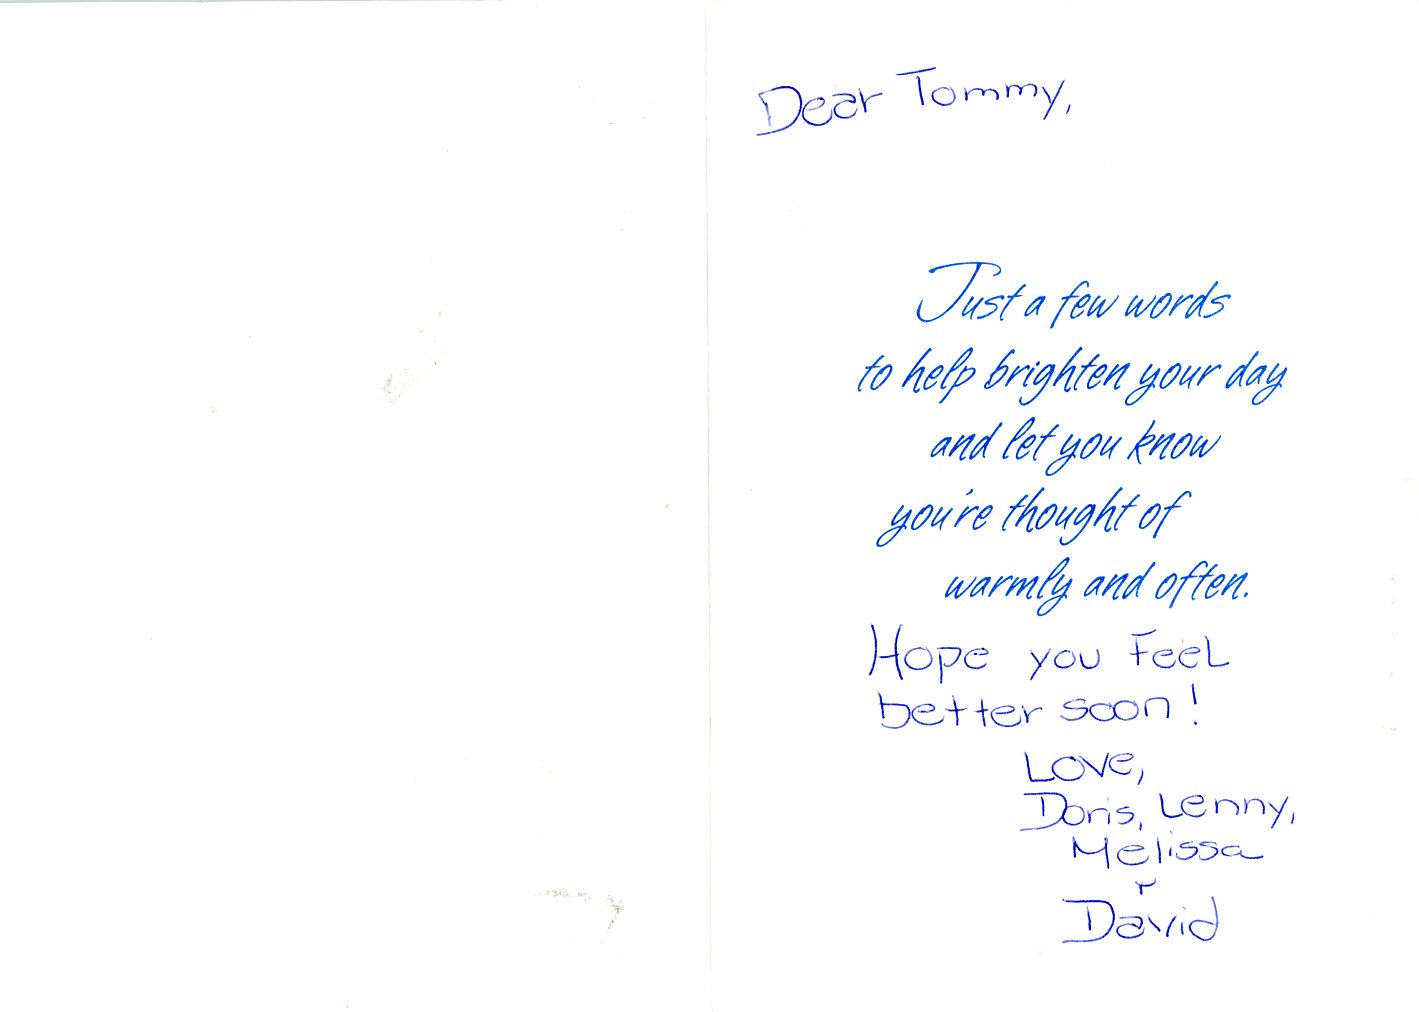 Dear Tommy,
Just a few words
to help brighten your day
and let you know
you're thought of
warmly and often.
Hope you Feel
better soon!
Love,
Doris, Lenny,
Melissa
+
David